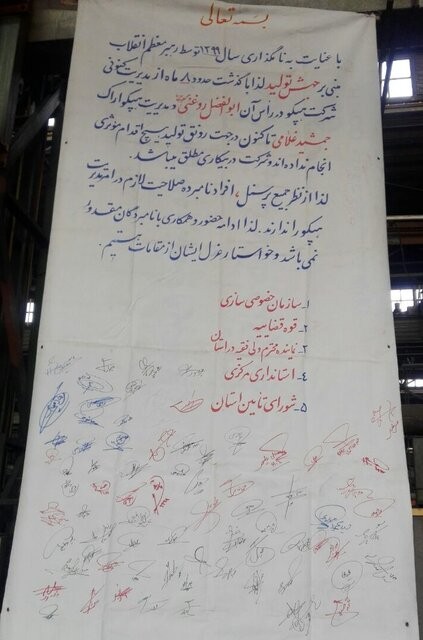 بسمه تعالی
با عنایت به نامگذاری سال ۱۳۹۹ توسط رهبر معظم انقلاب
مبنی بر جهش تولید لذا با گذشت حدود ۸ ماه از مدیریت کنونی
شرکت هپکو در رأس آن ابوالفضل روغنی و مدیریت هپکو اراک
جمشید غلامی تاکنون در جهت رونق تولید هیچ اقدام مؤثری
انجام نداده اند و شرکت در بیکاری مطلق میباشد.
لذا از نظر جمیع پرسنل، افراد نامبرده صلاحیت لازم در امر مدیریت
هپکو را ندارند. لذا ادامه حضور و همکاری با نامبردگان مقدور
نمی باشد و خواستار عزل ایشان از مقامات هستیم.
۱_ سازمان خصوصی سازی
۲_ قوه قضاییه
۳_ نماینده محترم ولی فقیه در استان
۴_ استانداری مرکزی
۵_ شورای تامین استان